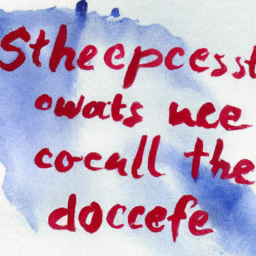 Sthepcesst
owats uce
cocull the
doccefe